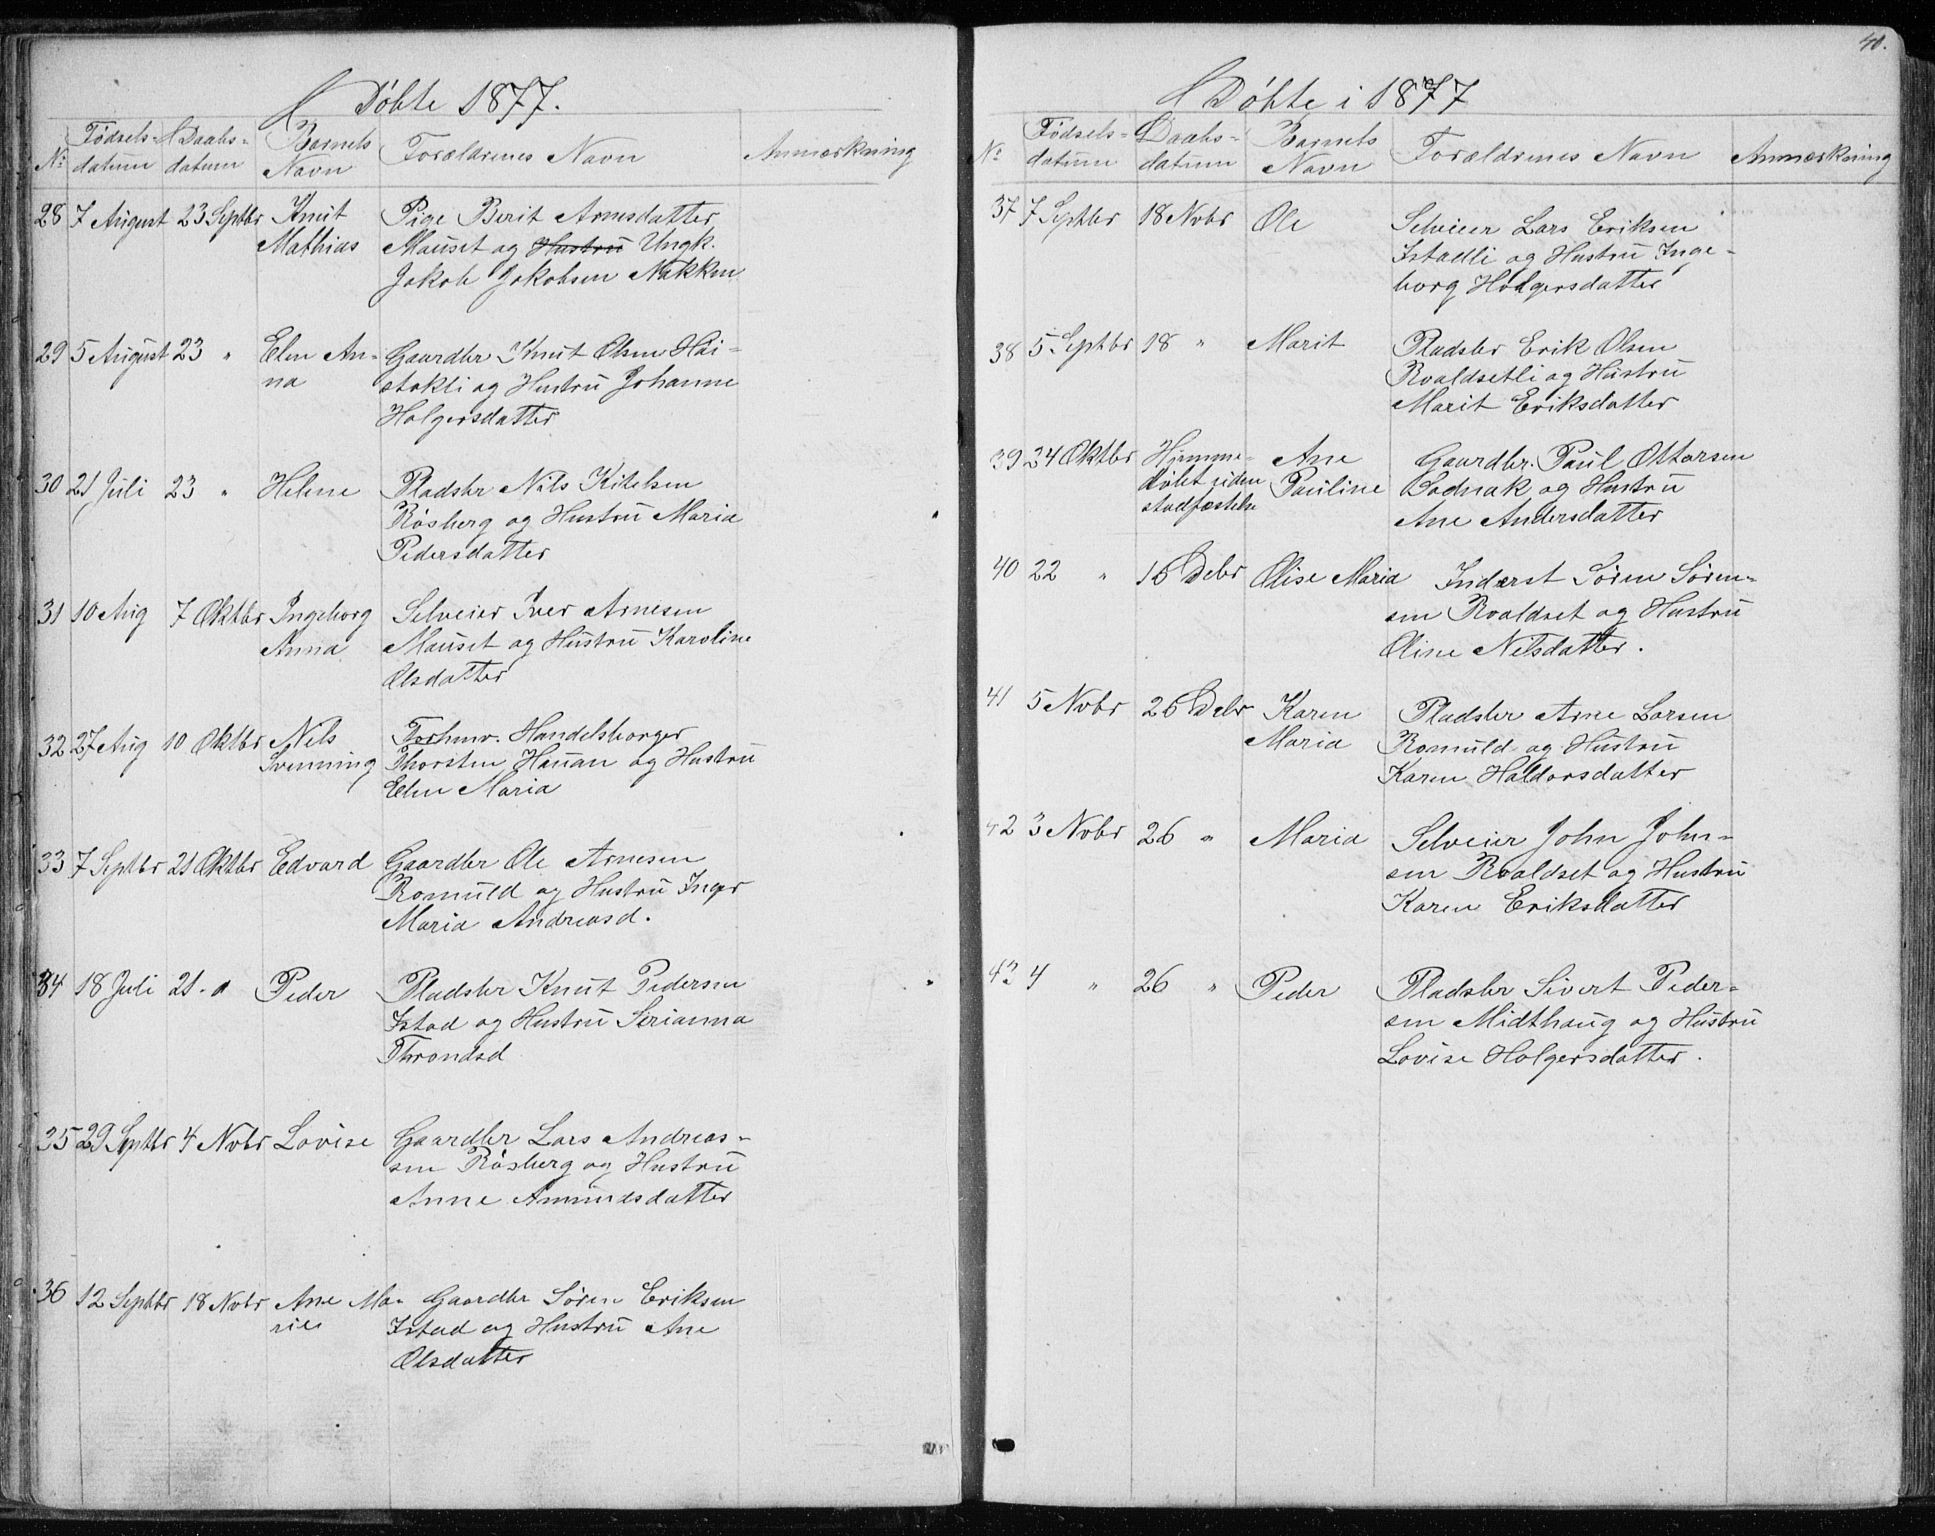 Döbte 1877.
No Fødsels-datum Daabs-datum Barnets Navn Forældrenes Navn Anmærkning
28 7 August 23 Septbr Knut Pige Berit Arnesdatter
Mathias Mauset og Hustru Ungk.
Jakob Jakobsen Nakken
29 5 August 23 " Elen An- Gaardbr Knut Olsen Hai-
na stokli og Hustru Johanne
Holgersdatter
30 21 Juli 23 " Helene Pladsbr Nils Kitelsen
Røsberg og Hustru Maria
Pedersdatter
31 10 Aug 7 Oktbr Ingeborg Selveier Iver Arnesen
Anna Mauset og Hustru Karoline
Olsdatter
32 27 Aug 10 Oktbr Nils Forhnv. Handelsborger
Svenning Thorsten Hauan og Hustru
Elen Maria
33 7 Septbr 21 Oktbr Edvard Gaardbr Ole Arnesen
Romuld og Hustru Inger
Maria Andreasd.
34 18 Juli 21 " Peder Pladsbr Knut Pedersen
Istad og Hustru Serianna
Throndsd
35 29 Septbr 4 Nvbr Lovise Gaardbr Lars Andreas-
sen Røsberg og Hustru
Anne Amundsdatter
36 12 Septbr 18 Nvbr Ane Ma- Gaardbr Søren Eriksen
rie Istad og Hustru Ane
Olsdatter
40.
Döbte i 1877
No Fødsels-datum Daabs-datum Barnets Navn Forældrenes Navn Anmærkning
37 7 Septbr 18 Nvbr Ole Selveier Lars Eriksen
Istadli og Hustru Inge-
borg Holgersdatter
38 5 Septbr 18 " Marit Pladsbr Erik Olsen
Roaldsetli og Hustru
Marit Eriksdatter
39 24 Oktbr Hjemme- Ane Gaardbr. Paul Ottarsen
døbt uden Pauline Hustru
stadfæstelse Ane Andersdatter
40 22 " 16 Debr Olise Maria Inderst Søren Søren-
sen Roaldset og Hustru
Oline Nilsdatter.
41 5 Nvbr 26 Debr Karen Pladsbr Arne Larsen
Maria Romuld og Hustru
Karen Haldorsdatter
42 3 Nvbr 26 " Maria Selveier John John-
sen Roaldset og Hustru
Karen Eriksdatter
43 4 " 26 " Peder Pladsbr Sivert Peder-
sen Midthaug og Hustru
Lovise Holgersdatter.